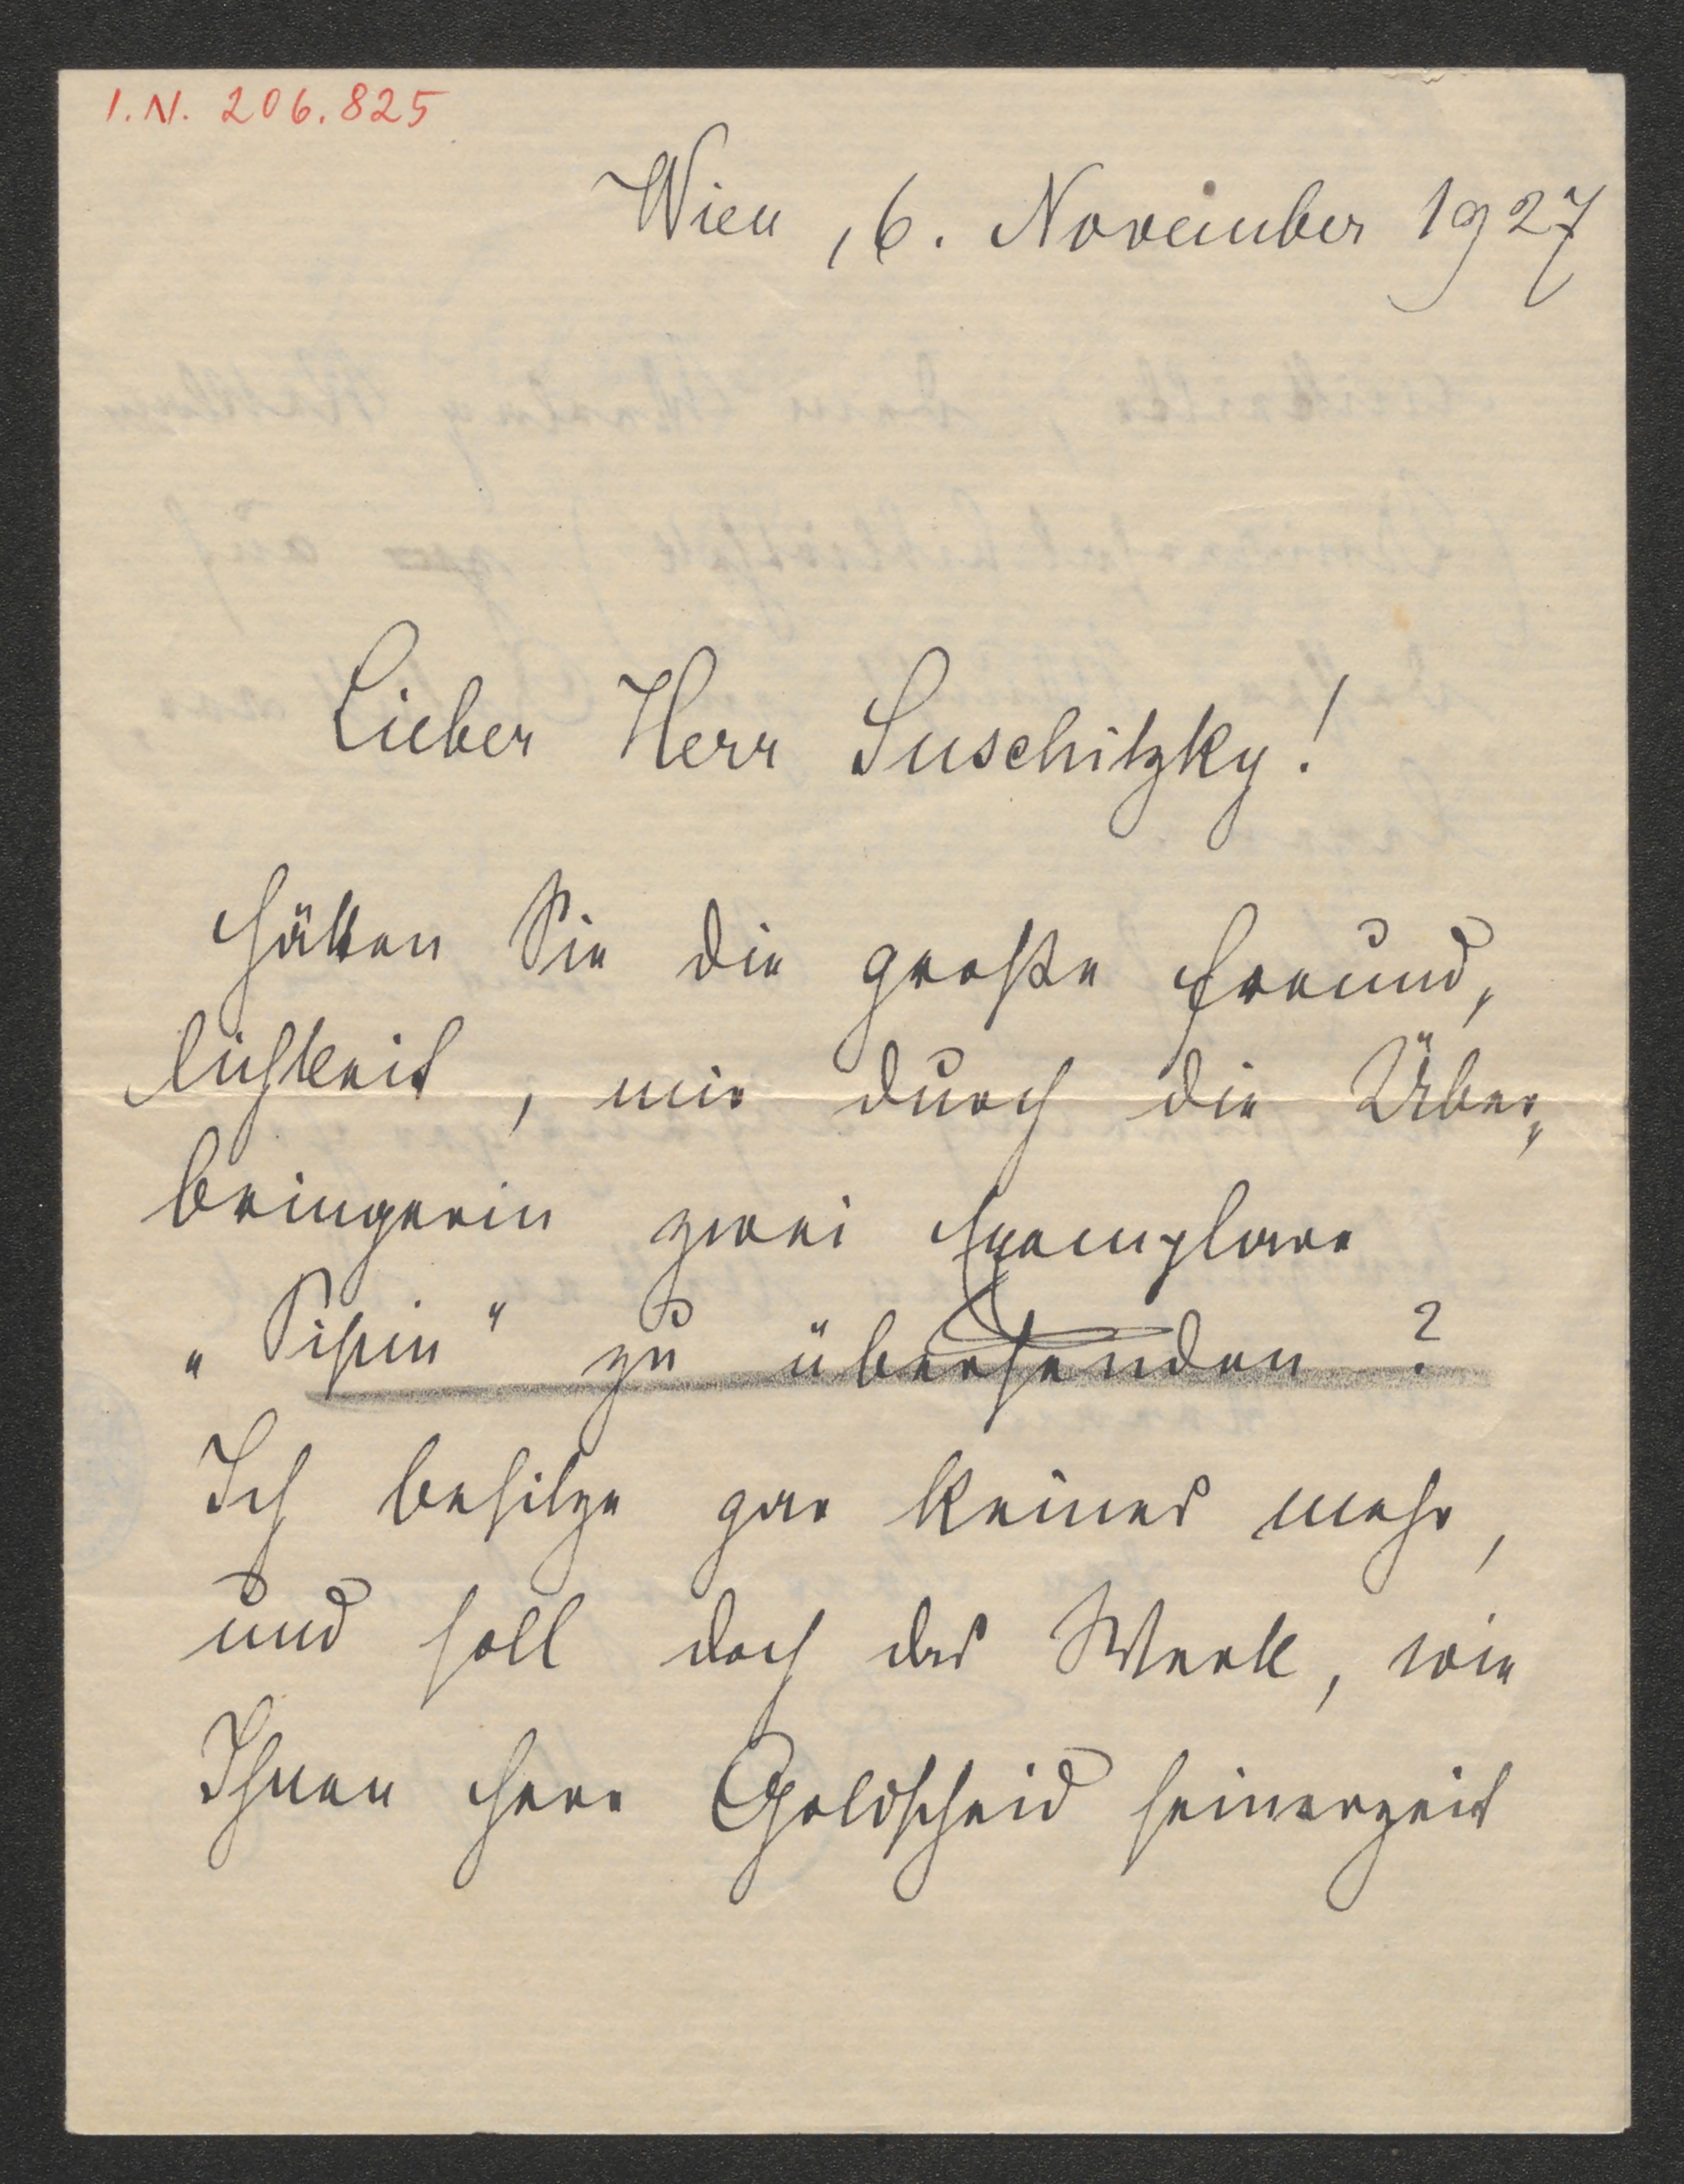 I.N. 206.825
Wien, 6. November 1927
Lieber Herr Suschitzky!
Hätten Sie die große Freund„
lichkeit, mir durch die Über„
bringerin zwei Exemplare
„Pipin“ zu übersenden?
Ich besitze gar keines mehr,
und soll doch das Werk, wie
Ihnen Herr Goldscheid seinerzeit